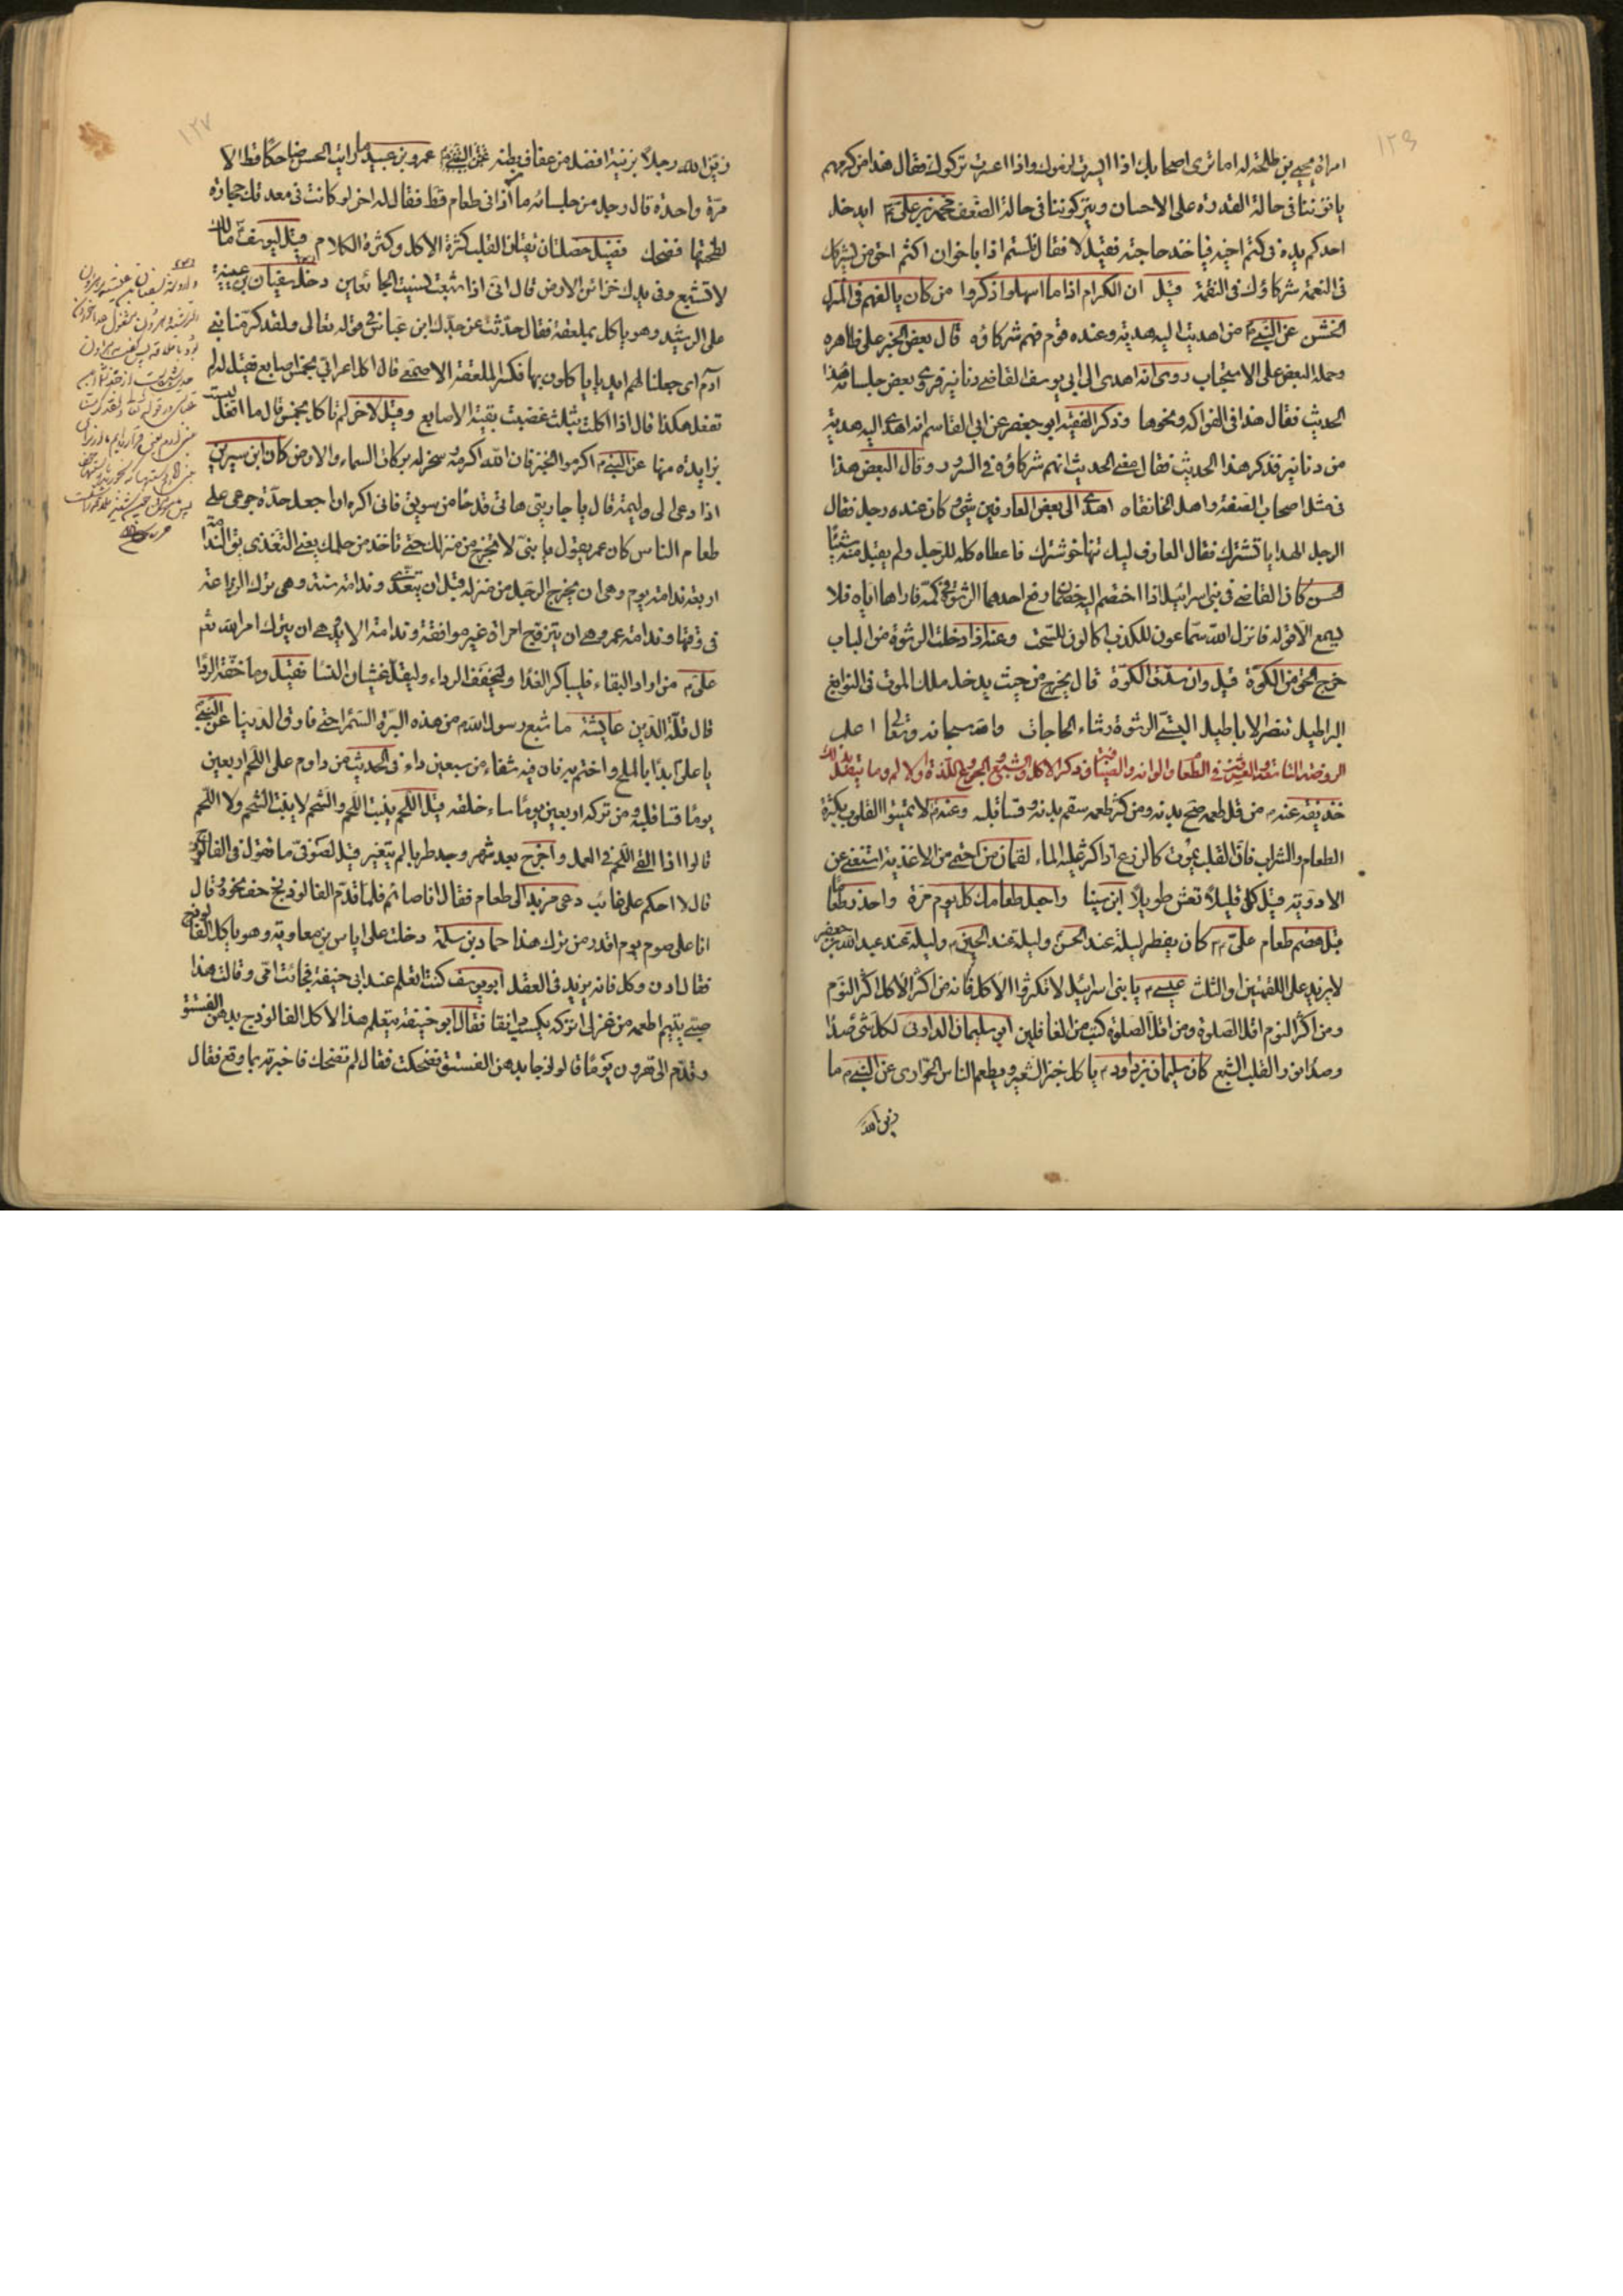 ١٢٩
امراة يحيى بن طلحة له اما ترى اصحابك اذا ايسرت لزموك واذا اعسرت تركوك فقال هذا من كرمهم
ياتوننا فى حالة القدرة على الاحسان ويتركوننا فى حالة الضعف محمد بن على ايدخل
احدكم يده فى كم اخيه فياخذ حاجته فقيل لا فقال فلستم اذا باخوان اكثم احق من يشركك
فى النعمة شركاؤك فى النقمة قيل ان الكرام اذا ما اسهلوا ذكروا من كان يالفهم فى المنزل
الخشن عن النبى من اهديت اليه هدية وعنده قوم فهم شركاؤه قال بعض الخبر على ظاهره
وحمله البعض على الاستحباب روى انه اهدى الى ابى يوسف القاضى دنانير فروى بعض جلسائه هذا
الحديث فقال هذا فى الفواكه ونحوها وذكر الفقيه ابو جعفر عن ابى القاسم انه اهدى اليه هدية
من دنانير فذكر هذا الحديث فقال معنى الحديث انهم شركاؤه فى السرور وقال البعض هذا
فى مثل اصحاب الصفة واهل الخانقاه اهدى الى بعض العارفين شئ كان عنده رجل فقال
الرجل الهدايا تشترك فقال العارف ليك تنها خوشترك فاعطاه كله للرجل ولم يقبل منه شيئا
الحسن كان القاضى فى بنى اسرائيل اذا اختصم اليه خصمان رفع احدهما الرشوة فى كمه فاراها اياه فلا
يسمع الا قوله فانزل الله سماعون للكذب اكالون للسحت وعنه اذا دخلت الرشوة من الباب
خرج الحق من الكوة قيل وان سدت الكوة قال يخرج من حيث يدخل ملك الموت فى النوابغ
البراطيل تنصر الاباطيل البستى الرشوة رشاء الحاجات والله سبحانه وتعالى اعلم
الروضة التاسعة والعشرون فى الطعام والوانه والضيافة وذكر الاكل والشبع والجوع واللذة والالم وما يتعلق بذلك
حذيفة عنه من قل طعمه صح بدنه ومن كثر طعمه سقم بدنه وقسا قلبه وعنه لا تميتوا القلوب بكثرة
الطعام والشراب فان القلب يموت كالزرع اذا كثر عليه الماء لقمان من احتمى من الاغذية استغنى عن
الادوية قيل كل قليلا تعش طويلا ابن سينا واجعل طعامك كل يوم مرة واحذر طعاما
قبل هضم طعام على كان يفطر ليلة عند الحسن وليلة عند الحسين وليلة عند عبد الله بن جعفر
لا يزيد على اللقمتين او الثلث عيسى يا بنى اسرائيل لا تكثروا الاكل فانه من اكثر الاكل اكثر النوم
ومن اكثر النوم اقل الصلوة ومن اقل الصلوة كتب من الغافلين ابو سليمان الدارانى لكل شئ صدأ
وصدأ نور القلب الشبع كان سليمان بن داود ياكل خبز الشعير ويطعم الناس الحوارى عن النبى ما
زين الله
١٢٧
زين الله رجلا بزينة افضل من عفاف بطنه عمرو بن عبيد ما رايت الحسن ضاحكا قط الا
مرة واحدة قال رجل من جلسائه ما آذانى طعام قط فقال له اخر لو كانت فى معدتك حجارة
لطحنتها فضحك فضيل خصلتان تقسيان القلب كثرة الاكل وكثرة الكلام قيل ليوسف مالك
لا تشبع وفى يدك خزائن الارض قال انى اذا شبعت نسيت الجائعين دخل سفيان بن عيينة
على الرشيد وهو ياكل بملعقة فقال حدثت عن جدك ابن عباس فى قوله تعالى ولقد كرمنا بنى
آدم اى جعلنا لهم ايديا ياكلون بها فكسر الملعقة الاصمعى قال اكل اعرابى بخمس اصابع فقيل له لم
تفعل هكذا قال اذا اكلت بثلث غضبت بقية الاصابع وقيل لاخر لم تاكل بخمس قال ما افعل ليست
بزايدة منها عن النبى اكرموا الخبز فان الله اكرمه سخر له بركات السماء والارض كان ابن سيرين
اذا دعى الى وليمة قال يا جاريتى هاتى قدحا من سويق فانى اكره ان اجعل حدة جوعى على
طعام الناس كان عمر يقول يا بنى لا تخرج من منزلك حتى تاخذ من حلمك يعنى التغذى
اربعة ندامة يوم وهى ان يخرج الرجل من منزله قبل ان يتغدى وندامة سنة وهى ترك الزراعة
فى وقتها وندامة عمر وهى ان يتزوج امراة غير موافقة وندامة الابد وهى ان يترك امر الله
على من اراد البقاء فليباكر الغداء وليخفف الرداء وليقل غشيان النساء فقيل وما خفة الرداء
قال قلة الدين عايشة ما شبع رسول الله من هذه البرة السمراء حتى فارق الدنيا عن النبى
يا على ابدا بالملح واختم به فان فيه شفاء من سبعين داء فى الحديث من داوم على اللحم اربعين
يوما قسا قلبه ومن تركه اربعين يوما ساء خلقه قيل اللحم ينبت اللحم والشحم لا ينبت الشحم ولا اللحم
قالوا اذا القى اللحم فى العسل واخرج بعد شهر وجد طريا لم يتغير قيل لصوفى ما تقول فى الفالوذج
قال لا احكم على غائب دعى مزيد الى طعام فقال انا صائم فلما قدم الفالوذج نحوه وقال
انا على صوم يوم اقدر من ترك هذا حماد بن سلمة دخلت على اياس بن معاوية وهو ياكل الفالوذج
فقال ادن وكل فانه يزيد فى العقل ابو يوسف كنت اتعلم عند ابى حنيفة فجائت امى وقالت هذا
صبى يتيم اطعمه من غزلى اتركه يكسب دانقا فقال ابو حنيفة يتعلم هذا الاكل الفالوذج بدهن الفستق
وقدم الى هرون يوما فالوذجا بدهن الفستق فضحكت فقال لم تضحك فاخبرته بما وقع فقال